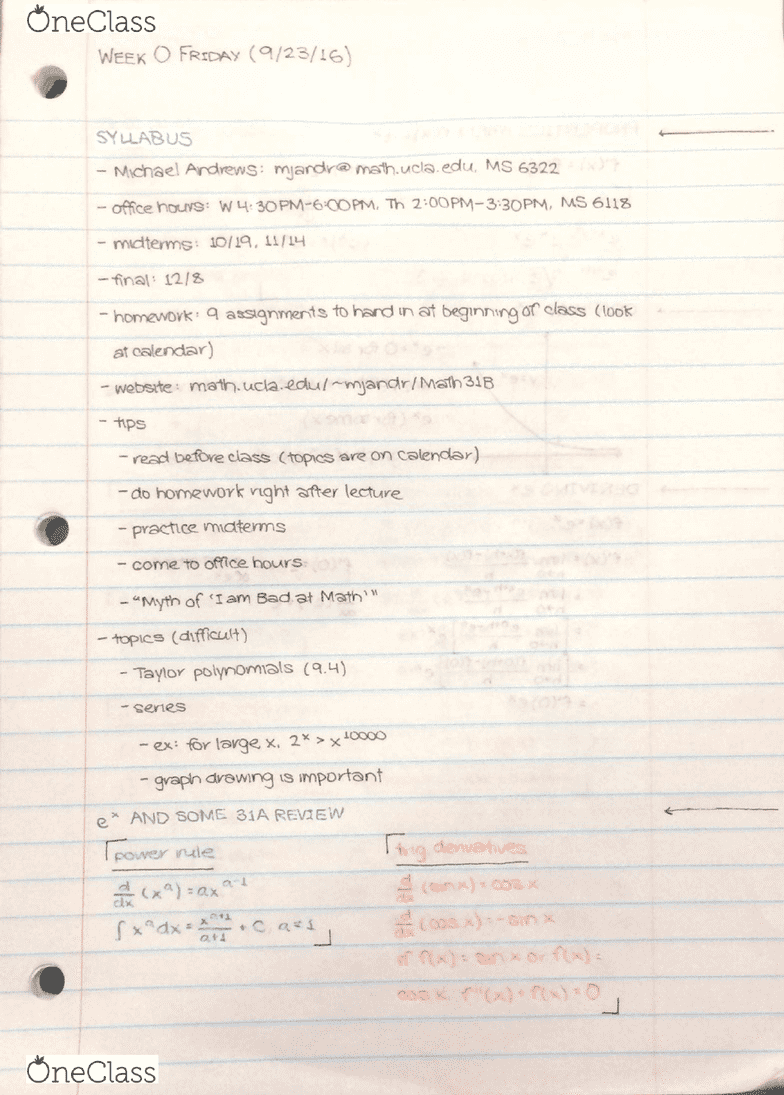 OneClass
WEEK 0 FRIDAY (9/23/16)
SYLLABUS
- Michael Andrews: mjandr@math.ucla.edu, MS 6322
- office hours: W 4:30PM-6:00PM, Th 2:00PM-3:30PM, MS 6118
- midterms: 10/19, 11/14
- final: 12/8
- homework: 9 assignments to hand in at beginning of class (look
at calendar)
- website: math.ucla.edu/~mjandr/Math31B
- tips
- read before class (topics are on calendar)
- do homework right after lecture
- practice midterms
- come to office hours
- "Myth of 'I am Bad at Math'"
- topics (difficult)
- Taylor polynomials (9.4)
- series
- ex: for large x, 2^x > x^10000
- graph drawing is important
e^x AND SOME 31A REVIEW
power rule
d/dx (x^a) = ax^a-1
∫ x^a dx = x^a+1/a+1 + C, a
trig derivatives
d/dx (sin x) = cos x
d/dx (cos x) = -sin x
if f(x) = sin x or f(x) =
cos x, f''(x) + f(x) = 0
OneClass